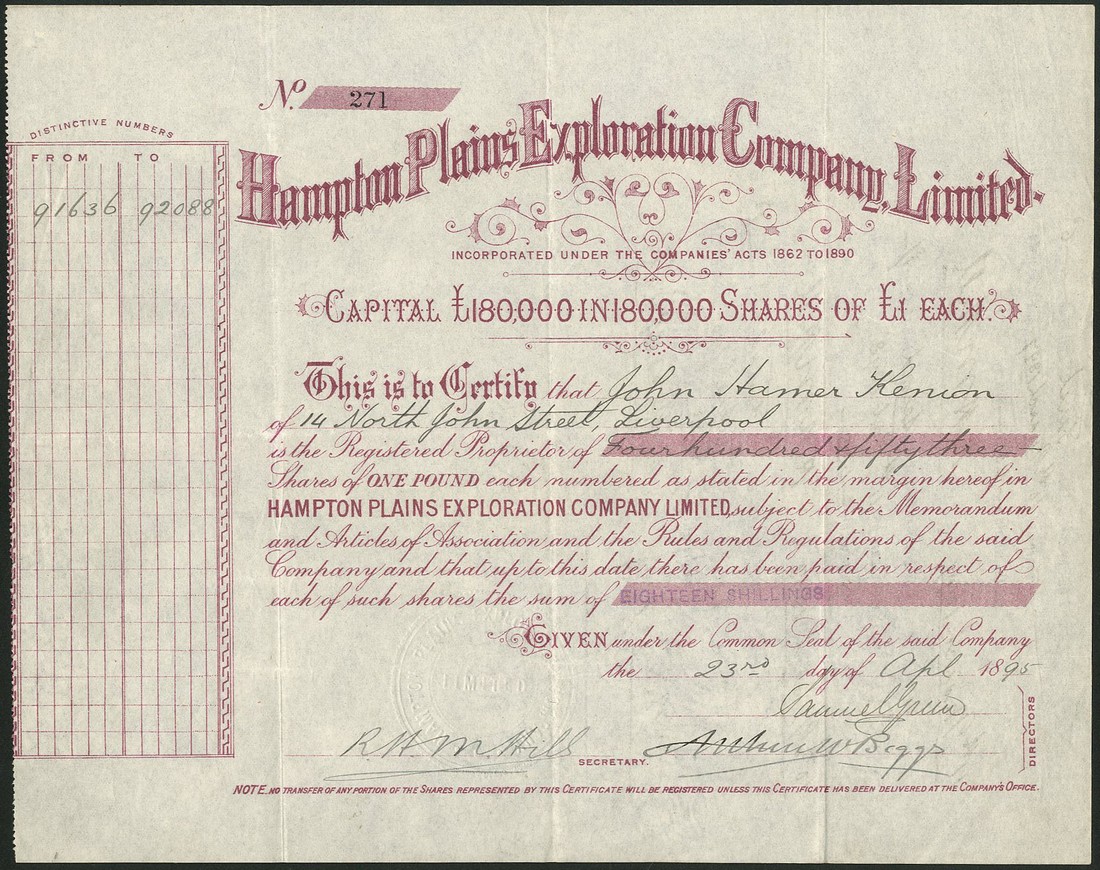 No. 271
DISTINCTIVE NUMBERS
FROM TO
91636 92088
Hampton Plains Exploration Company, Limited.
INCORPORATED UNDER THE COMPANIES' ACTS 1862 TO 1890
CAPITAL £180,000 IN 180,000 SHARES OF £1 EACH.
This is to Certify that John Hamer Kenion
of 14 North John Street, Liverpool
is the Registered Proprietor of Four hundred & fifty three
Shares of ONE POUND each numbered as stated in the margin hereof in
HAMPTON PLAINS EXPLORATION COMPANY LIMITED, subject to the Memorandum
and Articles of Association and the Rules and Regulations of the said
Company and that up to this date there has been paid in respect of
each of such shares the sum of EIGHTEEN SHILLINGS
GIVEN under the Common Seal of the said Company
the 23rd day of Apl 1895
LIMITED
Samuel Green
DIRECTORS
R H M Hill
SECRETARY.
Arthur W Beggs
NOTE. NO TRANSFER OF ANY PORTION OF THE SHARES REPRESENTED BY THIS CERTIFICATE WILL BE REGISTERED UNLESS THIS CERTIFICATE HAS BEEN DELIVERED AT THE COMPANY'S OFFICE.